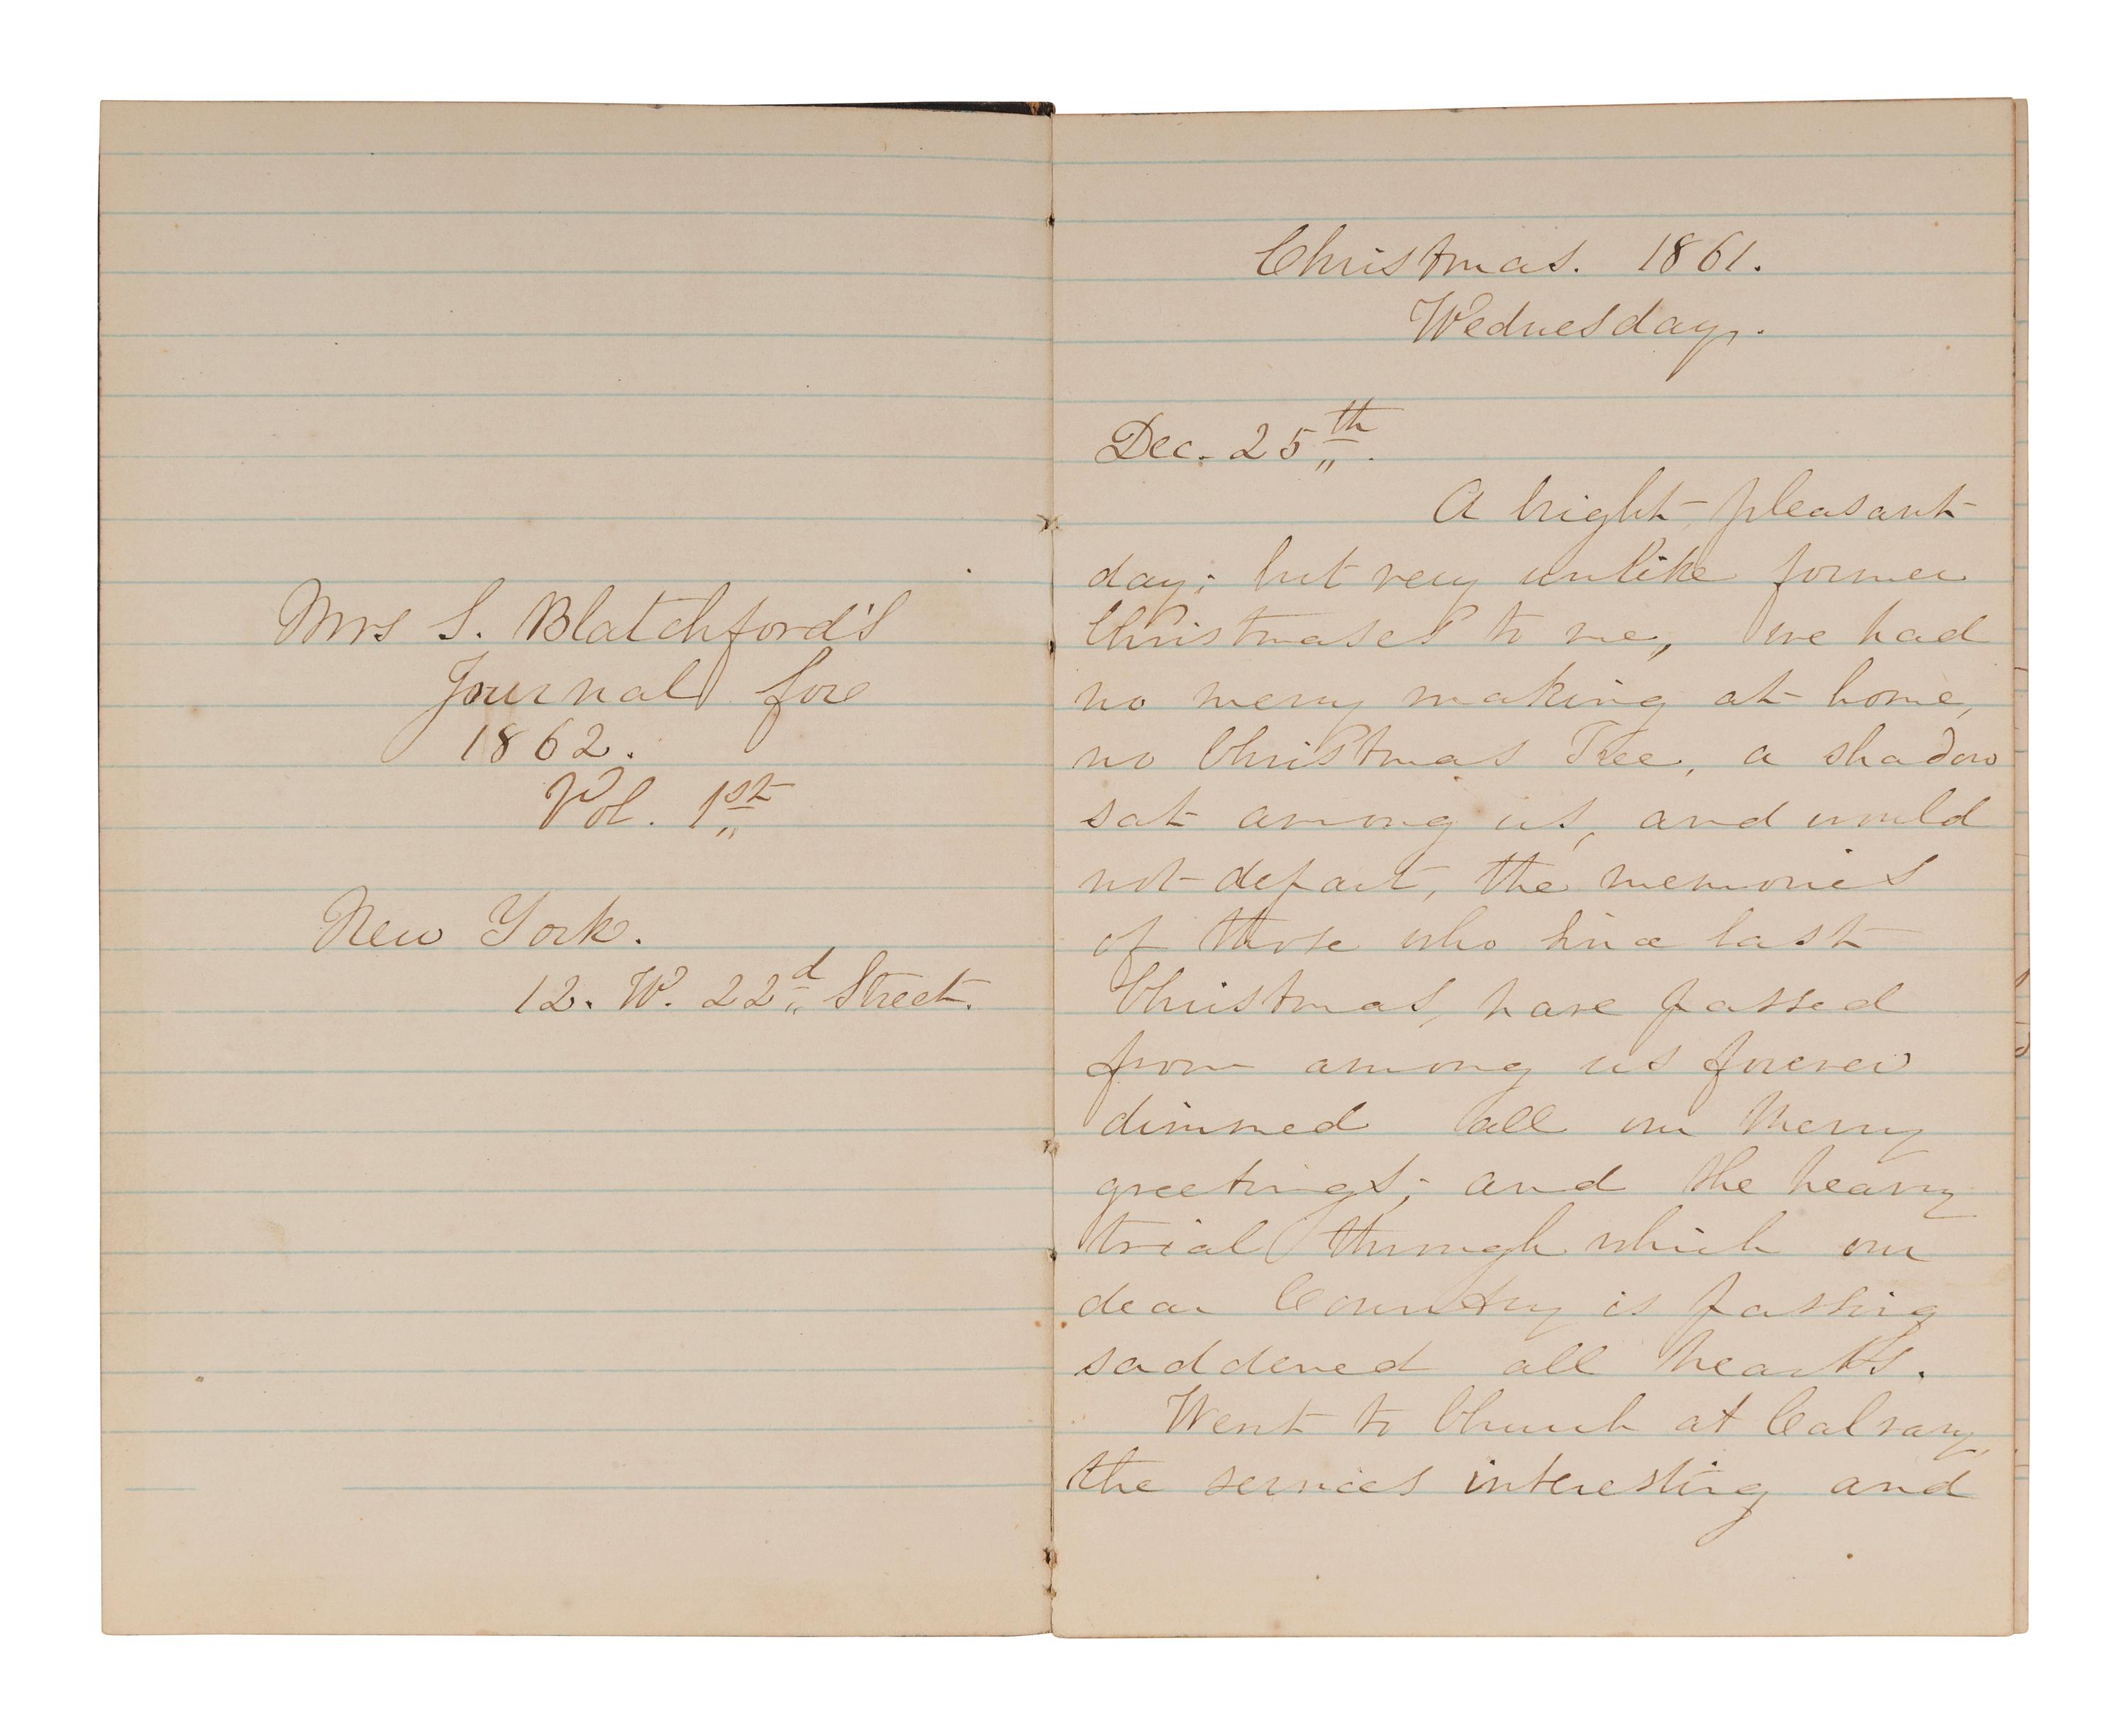 Mrs S. Blatchford's
Journal for
1862.
Vol. 1st
New York.
12. W. 22d Street.
Christmas. 1861.
Wednesday.
Dec. 25th.
A bright pleasant
day; but very unlike former
Christmases to me, we had
no merry making at home,
no Christmas Tree, a shadow
sat among us, and would
not depart, the memories
of those who since last
Christmas, have passed
from among us forever
dimmed all our Merry
greetings; and the heavy
trial through which our
dear Country is passing
saddened all hearts.
Went to Church at Calvary,
the services interesting and